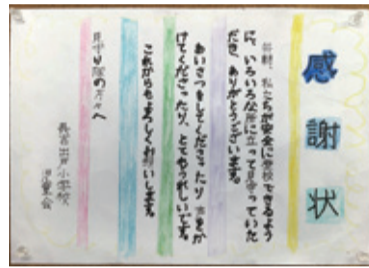 感謝状
毎朝、私たちが安全に登校できるよう
に、いろいろな場所に立って見守っていた
だき、ありがとうございます。
あいさつをしてくださったり声をか
けてくださったり、とてもうれしいです。
これからもよろしくお願いします。
見守り隊の方々へ
長吉出戸小学校
児童会